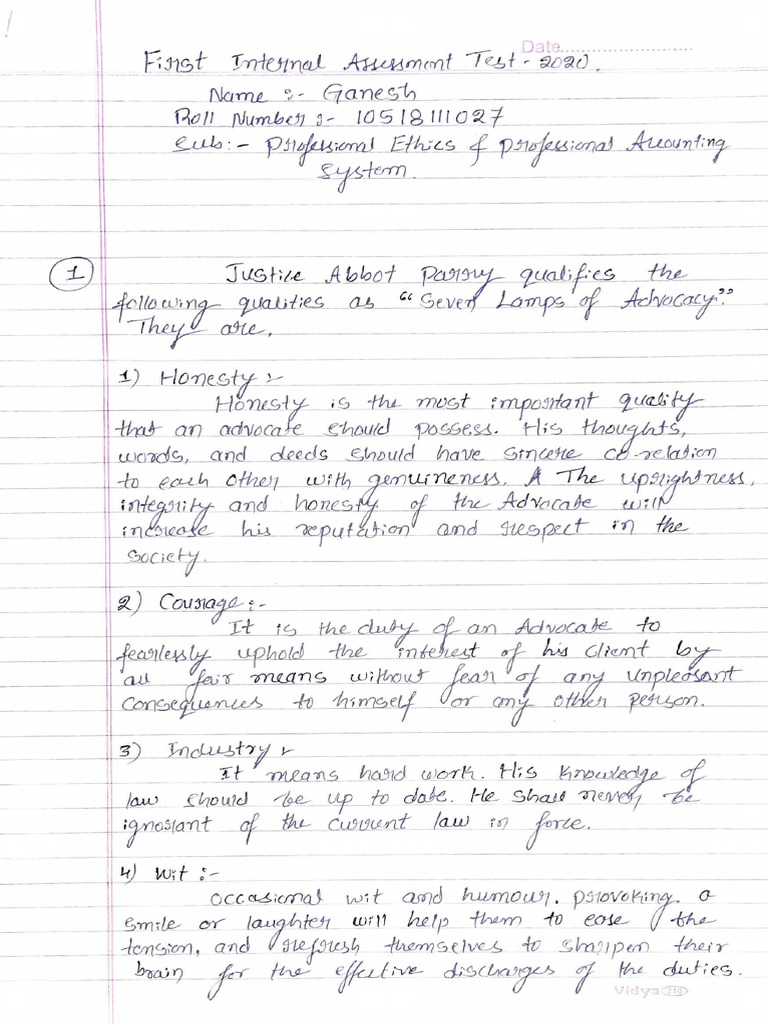 Date..............................
First Internal Assessment Test - 2020.
Name :- Ganesh
Roll Number :- 10518111027
Sub:- Professional Ethics & professional Accounting
System.
1 Justice Abbot Parry qualifies the
following qualities as "Seven Lamps of Advocacy".
They are.
1) Honesty :-
Honesty is the most important quality
that an advocate should possess. His thoughts,
words, and deeds should have sincere co-relation
to each other with genuineness. The uprightness,
integrity and honesty of the Advocate will
increase his reputation and respect in the
society.
2) Courage :-
It is the duty of an Advocate to
fearlessly uphold the interest of his client by
all fair means without fear of any unpleasant
consequences to himself or any other person.
3) Industry :-
It means hard work. His knowledge of
law should be up to date. He shall never be
ignorant of the current law in force.
4) Wit :-
Occasional wit and humour, provoking a
smile or laughter will help them to ease the
tension, and refresh themselves to sharpen their
brain for the effective discharges of the duties.
Vidya 310